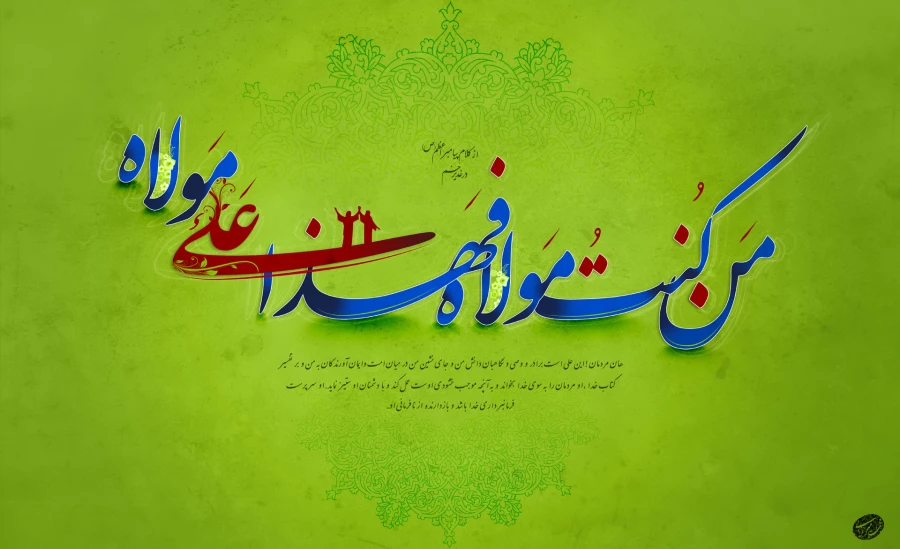 از کلام پیامبر اعظم (ص)
در غدیر خم
مَن کُنتُ مَولاه فَهذا عَلی مَولاه
هان مردمان! این علی است برادر و وصی و نگاهبان دانش من و جای نشین من در میان امت و ایمان آورندگان به من و بر تفسیر
کتاب خدا، او مردمان را به سوی خدا بخواند و به آنچه موجب خشنودی اوست عمل کند و با دشمنان او ستیز نماید. او سرپرست
فرمانبرداری خدا باشد و بازدارنده از نافرمانی او.